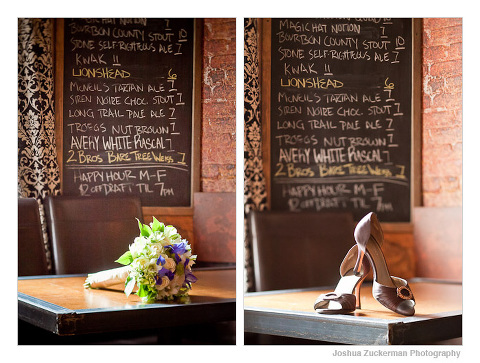 MAGIC HAT NOTION
BOURBON COUNTY STOUT 10
STONE SELF RIGHTEOUS ALE 7
KWAK 11
LIONSHEAD 6
MCNEIL'S TARTAN ALE 7
SIREN NOIRE CHOC STOUT 7
LONG TRAIL PALE ALE 7
TROEGS NUT BROWN 7
AVERY WHITE RASCAL 7
2 BROS BARE TREE WEISS 7
HAPPY HOUR M-F
$2 OFF DRAFT TIL 7PM
MAGIC HAT NOTION
BOURBON COUNTY STOUT 10
STONE SELF-RIGHTEOUS ALE 7
KWAK 11
LIONSHEAD 6
MCNEIL'S TARTAN ALE 7
SIREN NOIRE CHOC STOUT 7
LONG TRAIL PALE ALE 7
TROEGS NUT BROWN 7
AVERY WHITE RASCAL 7
2 BROS BARE TREE WEISS 7
HAPPY HOUR M-F
$2 OFF DRAFT TIL 7PM
Joshua Zuckerman Photography